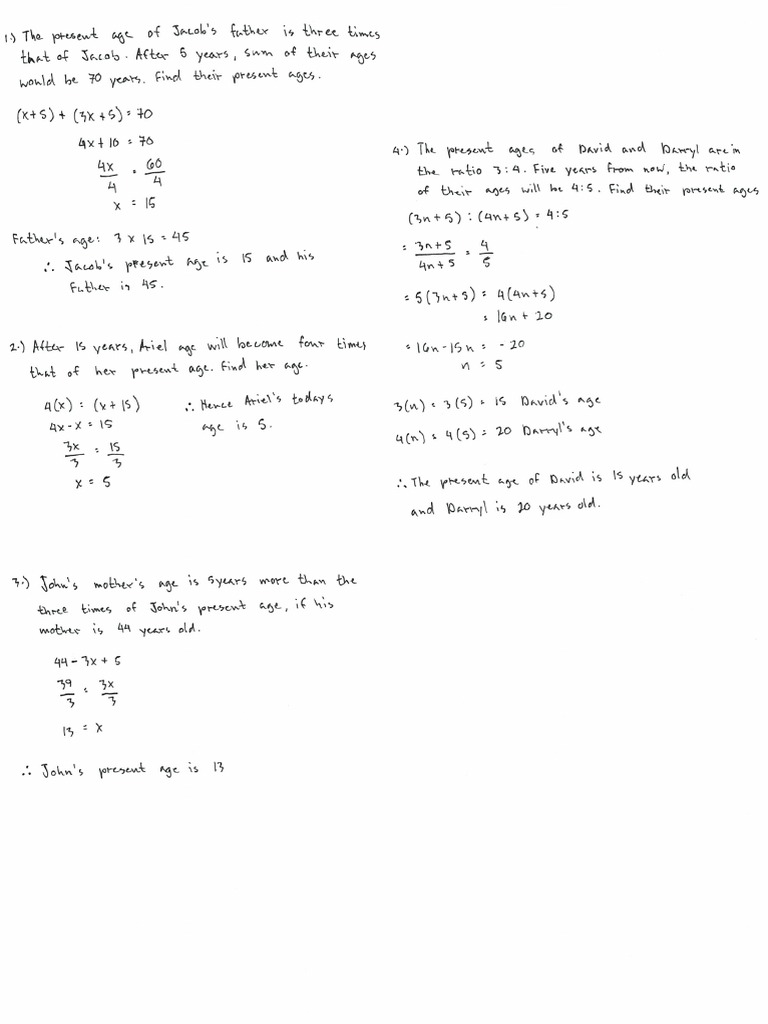 1.) The present age of Jacob's father is three times
that of Jacob. After 5 years, sum of their ages
would be 70 years. Find their present ages.
(x+5) + (3x+5) = 70
4x+10 = 70
4x/4 = 60/4
x = 15
Father's age: 3 x 15 = 45
∴ Jacob's present age is 15 and his
Father is 45.
2.) After 15 years, Ariel age will become four times
that of her present age. Find her age.
4(x) = (x+15)
4x-x = 15
3x/3 = 15/3
x = 5
∴ Hence Ariel's todays
age is 5.
3.) John's mother's age is 5years more than the
three times of John's present age, if his
mother is 44 years old.
44-3x+5
39/3 = 3x/3
13 = x
∴ John's present age is 13
4.) The present ages of David and Darryl are in
the ratio 3:4. Five years from now, the ratio
of their ages will be 4:5. Find their present ages
(3n+5) : (4n+5) = 4:5
= 3n+5/4n+5 = 4/5
= 5(3n+5) = 4(4n+5)
= 16n+20
= 16n-15n = -20
n = 5
3(n) = 3(5) = 15 David's age
4(n) = 4(5) = 20 Darryl's age
∴ The present age of David is 15 years old
and Darryl is 20 years old.